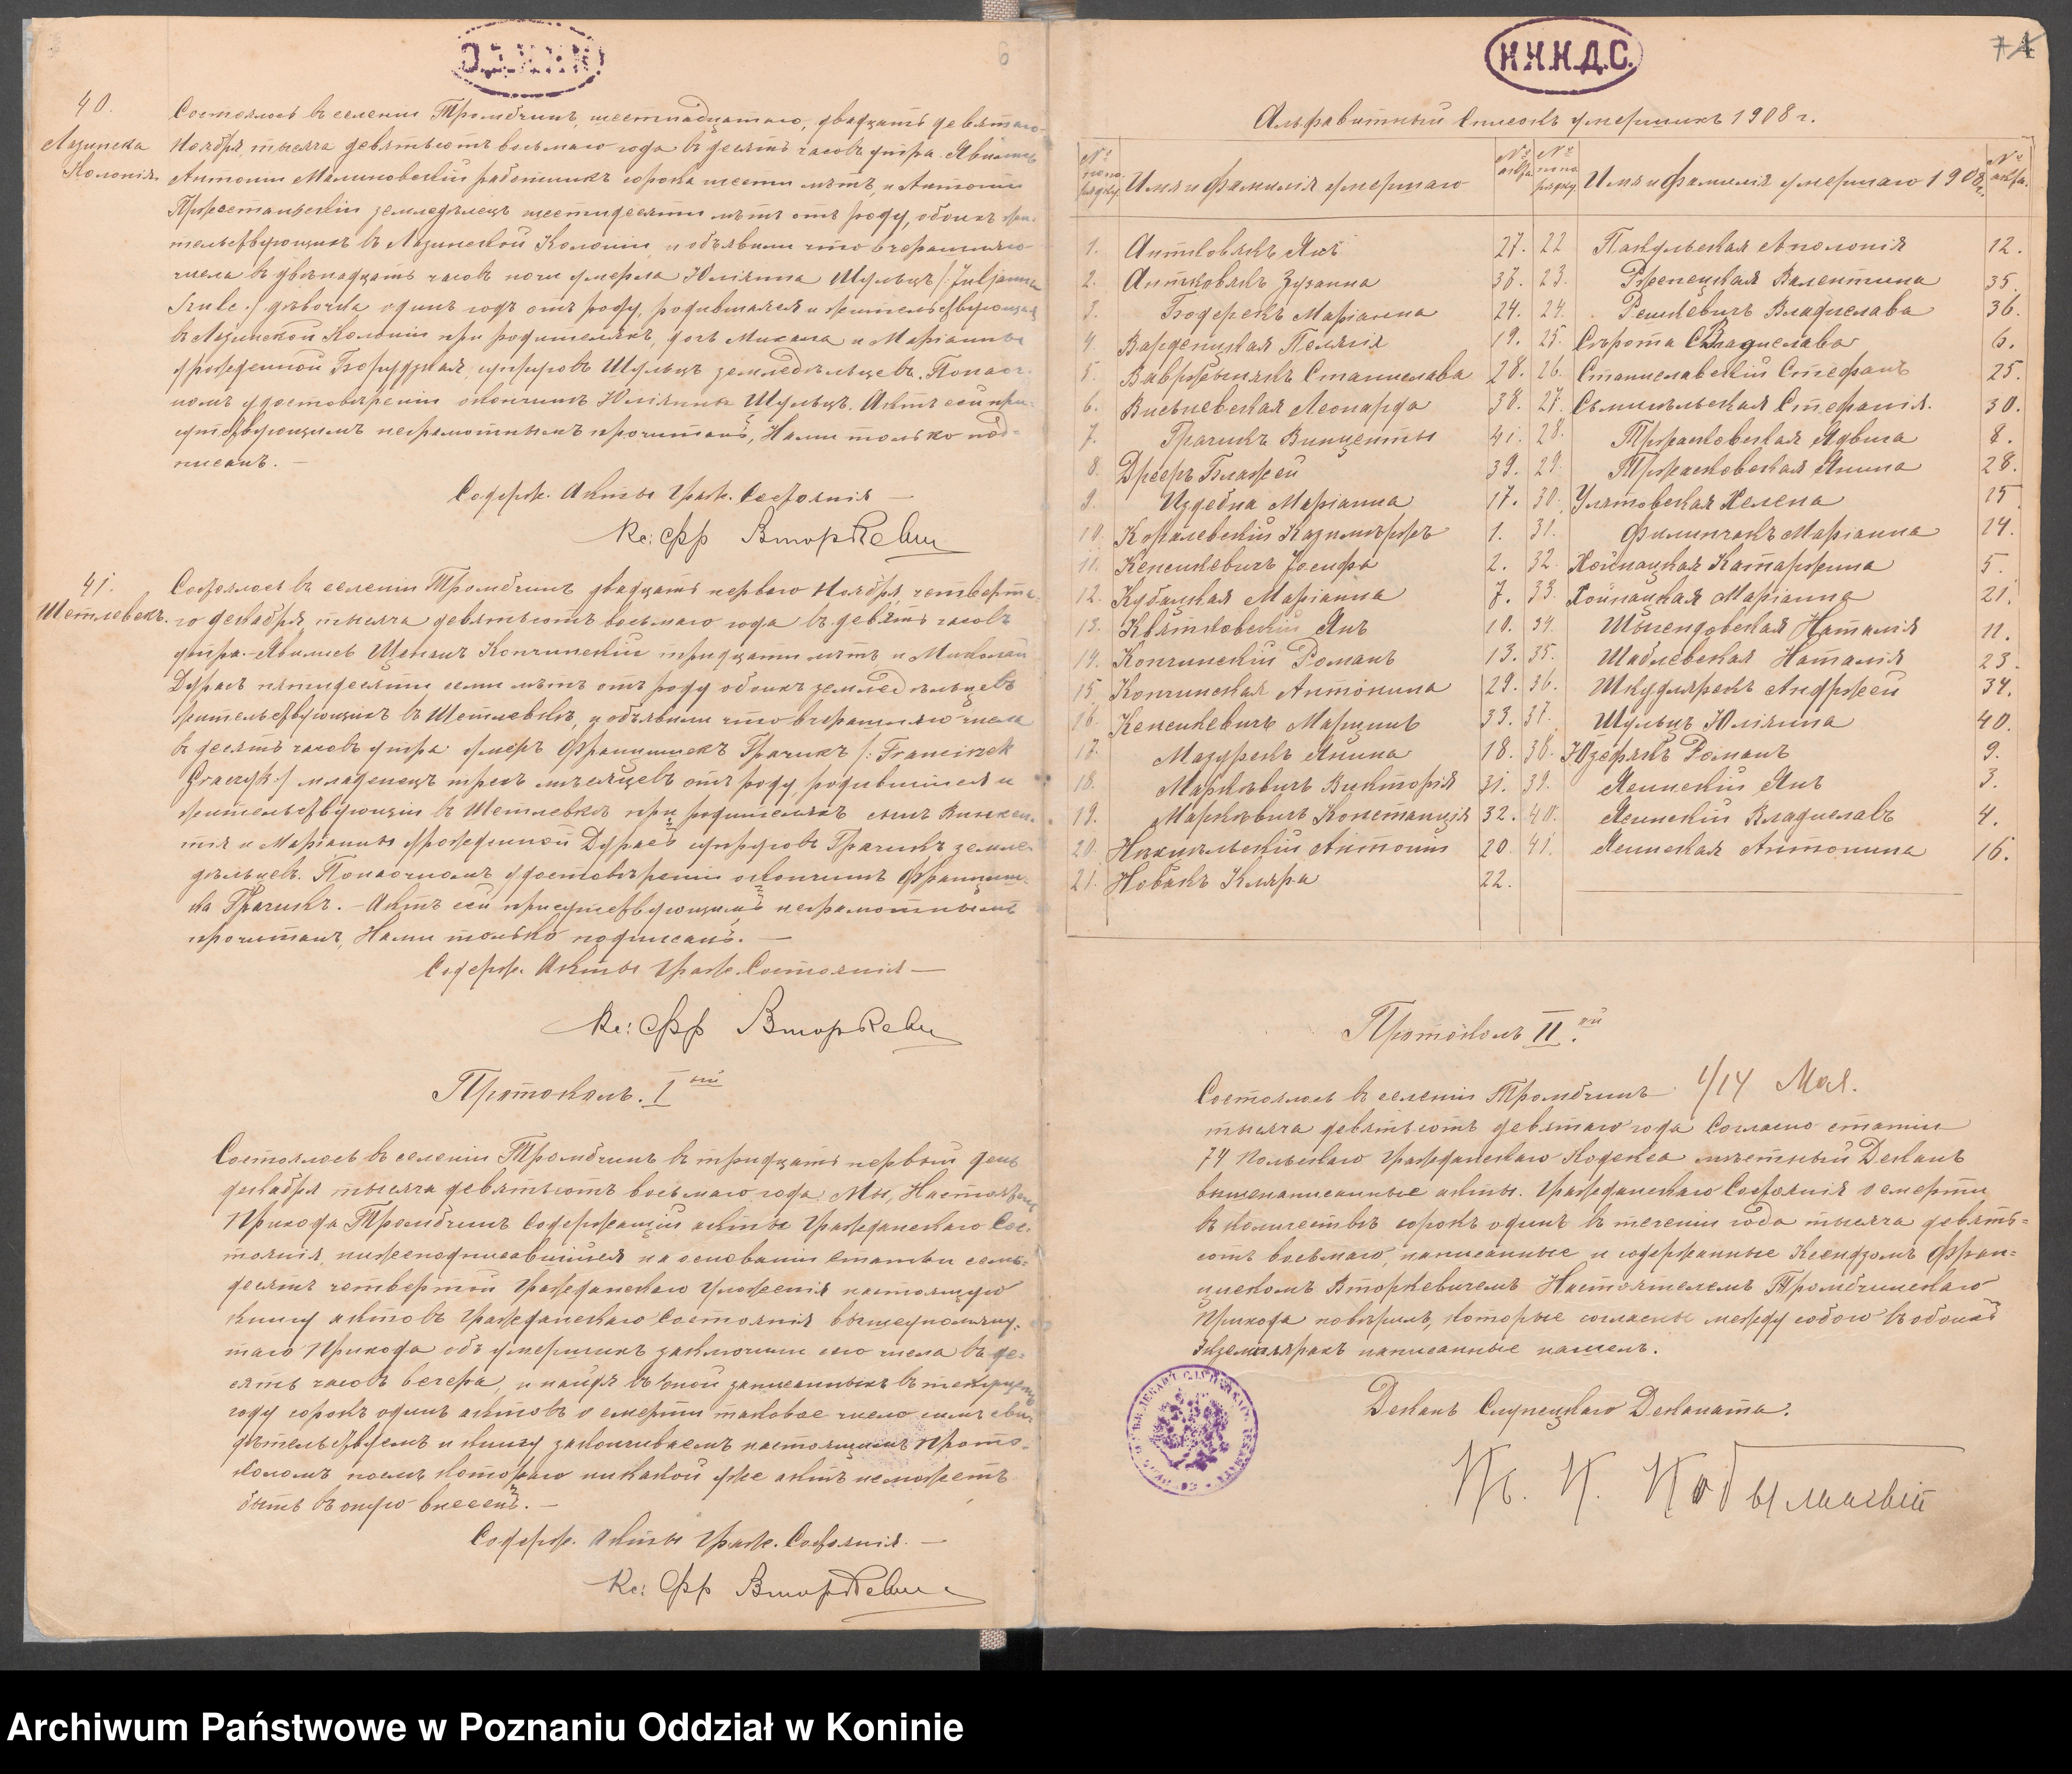 40.
Лазинска
Колонія.
Состоялось въ селеніи Тромбчинъ, шестнадцатаго, двадцать девятаго
Ноября, тысяча девятьсотъ восьмаго года въ десять часовъ утра. Явились
Антоній Малиновскій работникъ сорока шести лѣтъ, и Антоній
земледѣлецъ шестидесяти лѣтъ отъ роду, обоихъ жи-
тельствующихъ въ Лазинской Колоніи, и объявили что вчерашняго
числа въ двѣнадцать часовъ ночи умерла Юліянна Шульцъ /: Juljanna
Szulc :/ дѣвочка одинъ годъ отъ роду, родившаяся и жительствующая
въ Лазинской Колоніи при родителяхъ, дочь Михала и Маріанны
урожденной супруговъ Шульцъ земледѣльцевъ. По наоч-
номъ удостовѣреніи о кончинѣ Юліянны Шульцъ. Актъ сей при-
сутствующимъ неграмотнымъ прочитанъ, Нами только под-
писанъ. —
Содерж. Акты Граж. Состоянія —
Кс: Фр Вторкевич
41.
Шетлевекъ.
Состоялось въ селеніи Тромбчинъ двадцать перваго Ноября, четверта-
го декабря, тысяча девятьсотъ восьмаго года въ девять часовъ
утра. Явились Щепанъ Копчинскій тридцати лѣтъ, и Миколай
Дурась пятидесяти семи лѣтъ отъ роду обоихъ земледѣльцевъ
жительствующихъ въ Шетлевкѣ, и объявили что вчерашняго числа
въ десять часовъ утра умеръ Францишекъ Грачикъ /: Franciszek
Graczyk :/ младенецъ трехъ мѣсяцевъ отъ роду, родившійся и
жительствующій въ Шетлевкѣ при родителяхъ сынъ Винцен-
тія и Маріанны урожденной Дурась супруговъ Грачикъ земле-
дѣльцевъ. По наочномъ удостовѣреніи о кончинѣ Францишка
Грачикъ. — Актъ сей присутствующимъ неграмотнымъ
прочитанъ, Нами только подписанъ. —
Содерж. Акты Граж. Состоянія —
Кс: Фр Вторкевич
Протоколъ. I ый
Состоялось въ селеніи Тромбчинъ въ тридцать первый день
декабря тысяча девятьсотъ восьмаго года. Мы, Настоятель
Прихода Тромбчинъ Содержащій акты Гражданскаго Сос-
тоянія, нижеподписавшійся на основаніи статьи семь-
десятъ четвертой Гражданскаго Уложенія настоящую
книгу актовъ Гражданскаго Состоянія вышеупомяну-
таго Прихода объ умершихъ заключили сего числа въ де-
сять часовъ вечера, и найдя въ оной записанныхъ въ текущемъ
году сорокъ одинъ актовъ о смерти таковое число симъ сви-
дѣтельствуемъ и книгу заканчиваемъ настоящимъ прото-
коломъ послѣ котораго никакой уже актъ не можетъ
быть въ оную внесенъ. —
Содерж. Акты Граж. Состоянія. —
Кс: Фр Вторкевич
Н.Н.Н.Д.С.
Альфавитный Списокъ умершихъ 1908 г.
№ по порядку Имя и фамилія умершаго № акта № по порядку Имя и фамилія умершаго 1908 г. № акта.
1. Антковякъ Янъ 27. 22 Пакульская Аполонія 12.
2. Антковякъ Зузанна 37. 23. Ржепецкая Валентина 35.
3. Бодерекъ Маріанна 24. 24. Решкевичъ Владислава 36.
4. Варденцкая Пелягія 19. 25. Сырота Владислава 6.
5. Вавржыняк Станислава 28. 26. Станиславскій Стефанъ 25.
6. Висьневская Леонарда 38. 27. Сьмигельская Стефанія. 30.
7. Грачикъ Винценты 41. 28. Тржасковская Ядвига 8.
8. Дрееръ Блажей 39. 29. Тржасковская Янина 28.
9. Издебна Маріанна 17. 30. Улятовская Хелена 15
10. Коралевскій Казимѣржъ 1. 31. Филипчакъ Маріанна 14.
11. Кепскевичъ Іосифа 2. 32. Хойнацкая Катаржина 5.
12. Кубацкая Маріанна 7. 33. Хойнацкая Маріанна 21.
13. Квятковскій Янъ 10. 34. Наталія 11.
14. Копчинскій Романъ 13. 35. Шаблевская Наталія 23.
15 Копчинская Антонина 29. 36. Шкудлярекъ Андржей 34.
16. Кепскевичъ Марцинъ 33. 37. Шульцъ Юліянна 40.
17. Мазурекъ Янина 18. 38. Юзефякъ Романъ 9.
18. Марковичъ Викторія 31. 39. Ясинскій Янъ 3.
19. Марковичъ Констанція 32. 40. Ясинскій Владиславъ 4.
20. Антоній 20. 41. Ясинская Антонина 16.
21. Новакъ Кляра 22.
Протоколъ II ой.
Состоялось въ селеніи Тромбчинъ 1/14 Мая.
тысяча девятьсотъ девятаго года Согласно статіи
74 Польскаго Гражданскаго Кодекса мѣстный Деканъ
вышенаписанные акты. Гражданскаго Состоянія о смерти
въ количествѣ сорокъ одинъ въ теченіи года тысяча девять-
сотъ восьмаго, написанные и содержанные Ксендзомъ Фран-
цискомъ Вторкевичемъ Настоятелемъ Тромбчинскаго
Прихода повѣрилъ, которые согласны между собою въ обоихъ
Экземплярахъ написанные нашелъ.
Деканъ Слупецкаго Деканата.
Кс. К. Кобылинскій
Archiwum Państwowe w Poznaniu Oddział w Koninie